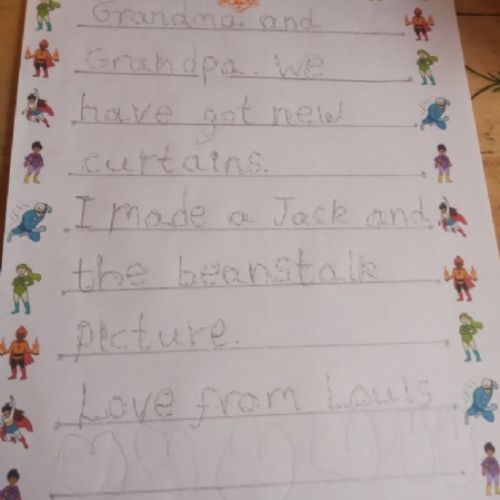 Grandma and
Grandpa. We
have got new
curtains.
I made a Jack and
the beanstalk
picture.
Love from Louis